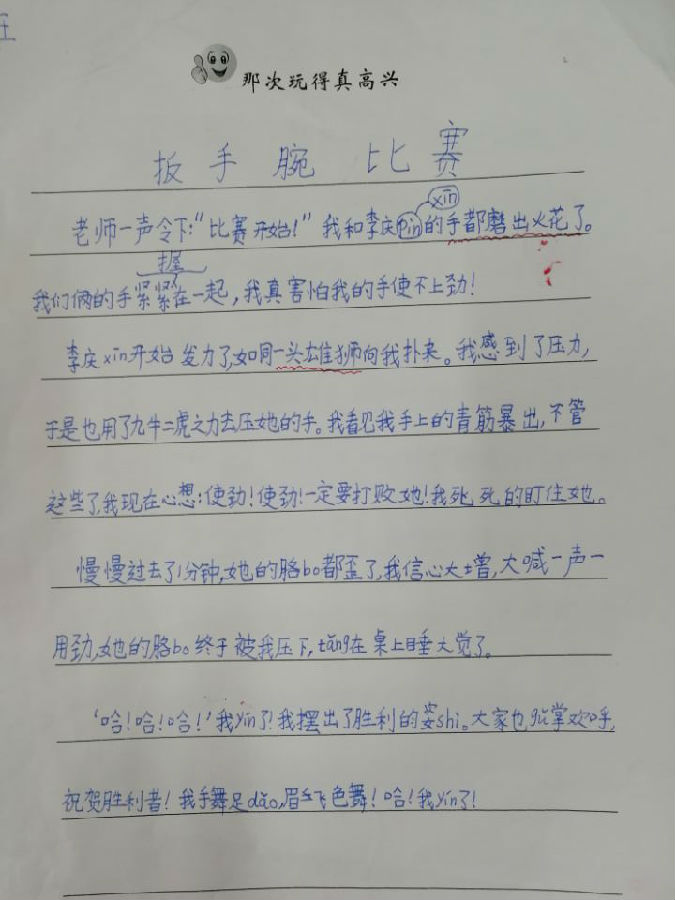 王
那次玩得真高兴
扳手腕 比赛
xīn
老师一声令下:“比赛开始!”我和李庆pin的手都磨出火花了。
握
我们俩的手紧紧在一起,我真害怕我的手使不上劲!
李庆xīn开始发力了,如同一头雄狮向我扑来。我感到了压力,
于是也用了九牛二虎之力去压她的手。我看见我手上的青筋暴出,不管
这些了,我现在心想:使劲!使劲!一定要打败她!我死死的盯住她。
慢慢过去了1分钟,她的胳bo都歪了,我信心大增,大喊一声一
用劲,她的胳bo终于被我压下,tǎng在桌上睡大觉了。
‘哈!哈!哈!’我yín了!我摆出了胜利的姿shi。大家也鼓掌欢呼,
祝贺胜利者!我手舞足dǎo,眉飞色舞!哈!我yín了!